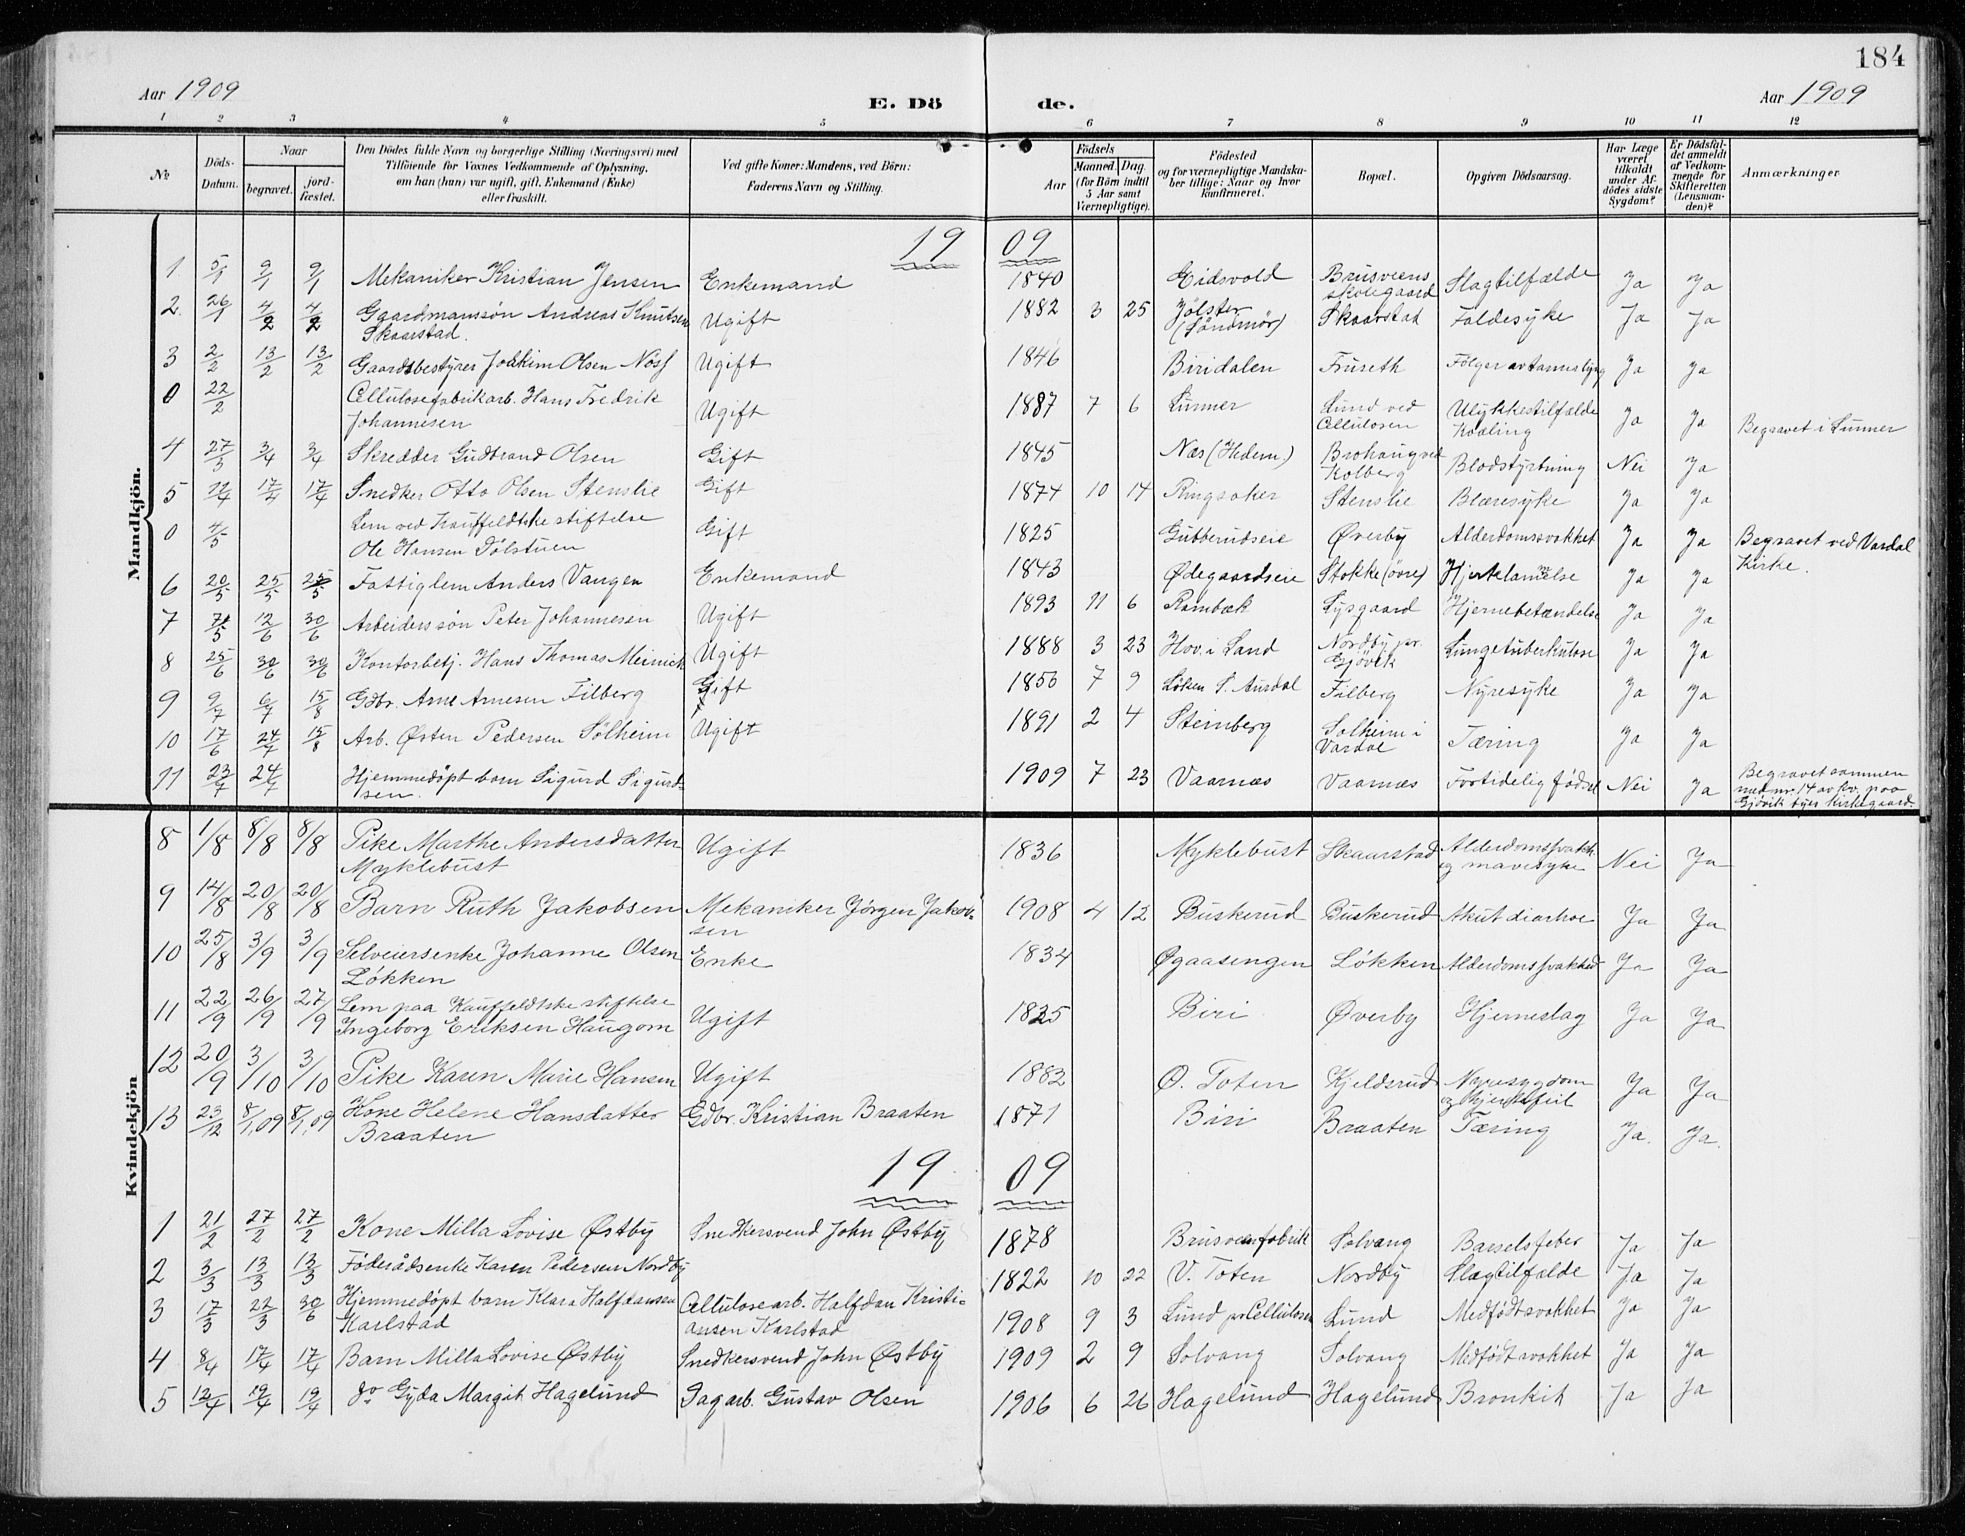 184
Aar 1909 E. Dö de. Aar 1909
1 2 3 4 5 6 7 8 9 10 11 12
No
Döds-Datum.
Naar
begravet.
jord-fæstet.
Den Dödes fulde Navn og borgerlige Stilling (Næringsvei) med
Tilföiende for Voxnes Vedkommende af Oplysning,
om han (hun) var ugift, gift, Enkemand (Enke)
eller fraskilt.
Ved gifte Koner: Mandens, ved Börn:
Faderens Navn og Stilling.
Födsels
Aar
Maaned. Dag.
(for Börn indtil
5 Aar samt
Værnepligtige).
Födested
og for værnepligtige Mandska-
ber tillige: Naar og hvor
konfirmeret.
Bopæl.
Opgiven Dödsaarsag.
Har Læge
været
tilkaldt
under Af-
dödes sidste
Sygdom?
Er Dödsfal-
det anmeldt
af Vedkom-
mende for
Skifteretten
(Lensman-
den)?
Anmærkninger
Mandkjön.
1909
1 5/1 9/1 9/1 Mekaniker Kristian Jensen Enkemand 1840 Eidsvold Brusveens skolegaard Slagtilfælde Ja Ja
2 26/1 4/2 4/2 Gaardmanssøn Andreas Knutsen Skaarstad. Ugift 1882 3 25 Jölster (Söndmör) Skaarstad Faldesyke Ja Ja
3 2/2 13/2 13/2 Gaardsbestyrer Joakim Olsen Nöss Ugift 1846 Biridalen Fruseth Ja Ja
0 22/2 Cellulosefabrikarb. Hans Fredrik Johannesen Ugift 1887 7 6 Lunner Lund ved Cellulosen Ulykkestilfælde Kvæling Ja Ja Begravet i Lunner
4 27/3 3/4 3/4 Skredder Gudbrand Olsen Gift 1845 Næs (Hedem.) Brohaug ved Kolberg Blodstyrtning Nei Ja
5 12/4 17/4 17/4 Snedker Otto Olsen Stenslie Gift 1874 10 14 Ringsaker Stenslie Blæresyke Ja Ja
0 4/5 Lem ved Kauffeldtske stiftelse Ole Hansen Dölstuen Gift 1825 Gubberudseie Øverby Alderdomssvakhet Ja Ja Begravet ved Vardal Kirke.
6 20/5 25/5 25/5 Fattiglem Anders Vangen Enkemand 1843 Ødegaardseie Stokke (övre) Hjertelammelse Ja Ja
7 /5 12/6 30/6 Arbeiderssön Peter Johannesen Ugift 1893 11 6 Rambæk Sysgaard Hjernebetændelse Ja Ja
8 25/6 30/6 30/6 Kontorbetj. Hans Thomas Meinich Ugift 1888 3 23 Hov i Land Nordby pr. Gjövik Lungetuberkulose Ja Ja
9 2/7 6/7 15/8 Gdbr. Arne Arnesen Filberg Gift 1856 7 9 Löken S. Aurdal Filberg Nyresyke Ja Ja
10 17/6 24/7 15/8 Arb. Østen Pedersen Solheim Ugift 1891 2 4 Steinberg Solheim i Vardal Tæring Ja Ja
11 23/7 24/7 Hjemmedöpt barn Sigurd Sigurd-sen. 1909 7 23 Vaarnæs Vaarnæs Fortidelig födsel Nei Ja Begravet sammen med nr. 14 av kv. paa Gjövik byes kirkegaard.
Kvindekjön
8 1/8 8/8 8/8 Pike Marthe Andersdatter Myklebust Ugift 1836 Myklebust Skaarstad Alderdomssvakh. og mavesyke Nei Ja
9 14/8 20/8 20/8 Barn Ruth Jakobsen Mekaniker Jörgen Jakob-sen 1908 4 12 Buskerud Buskerud Akut diarhoe Ja Ja
10 25/8 3/9 3/9 Selveiersenke Johanne Olsen Løkken Enke 1834 Øgaasengen Løkken Alderdomssvakhed Ja Ja
11 22/9 26/9 27/9 Lem paa Kauffeldtske stiftelse Ingeborg Eriksen Haugom Ugift 1825 Biri Øverby Hjerneslag Ja Ja
12 20/9 3/10 3/10 Pike Karen Marie Hansen Ugift 1882 Ø. Toten Kjeldsrud Nyresygdom og Hjertefeil Ja Ja
13 23/12 8/1,09 8/1,09 Kone Helene Hansdatter Braaten Gdbr. Kristian Braaten 1871 Biri Braaten Tæring Ja. Ja.
1909
1 21/2 27/2 27/2 Kone Milla Lovise Østby Snedkersvend John Østby 1878 Brusveenfabrik Solvang Barselsfeber Ja Ja
2 3/3 13/3 13/3 Föderådsenke Karen Pedersen Nordby 1822 10 22 V. Toten Nordby Slagtilfælde Ja Ja
3 17/3 22/3 30/6 Hjemmedöpt barn Klara Halfdansen Karlstad Cellulosearb. Halfdan Kristi-ansen Karlstad 1908 9 3 Lund pr Cellulosen Lund Medfödt svakhet Ja Ja
4 8/4 17/4 17/4 Barn Milla Lovise Østby Snedkersvend John Østby 1909 2 9 Solvang Solvang Medfödt svakhet Ja Ja
5 12/4 19/4 19/4 do Gyda Margit Hagelund Sagarb. Gustav Olsen 1906 6 26 Hagelund Hagelund Bronkit Ja Ja